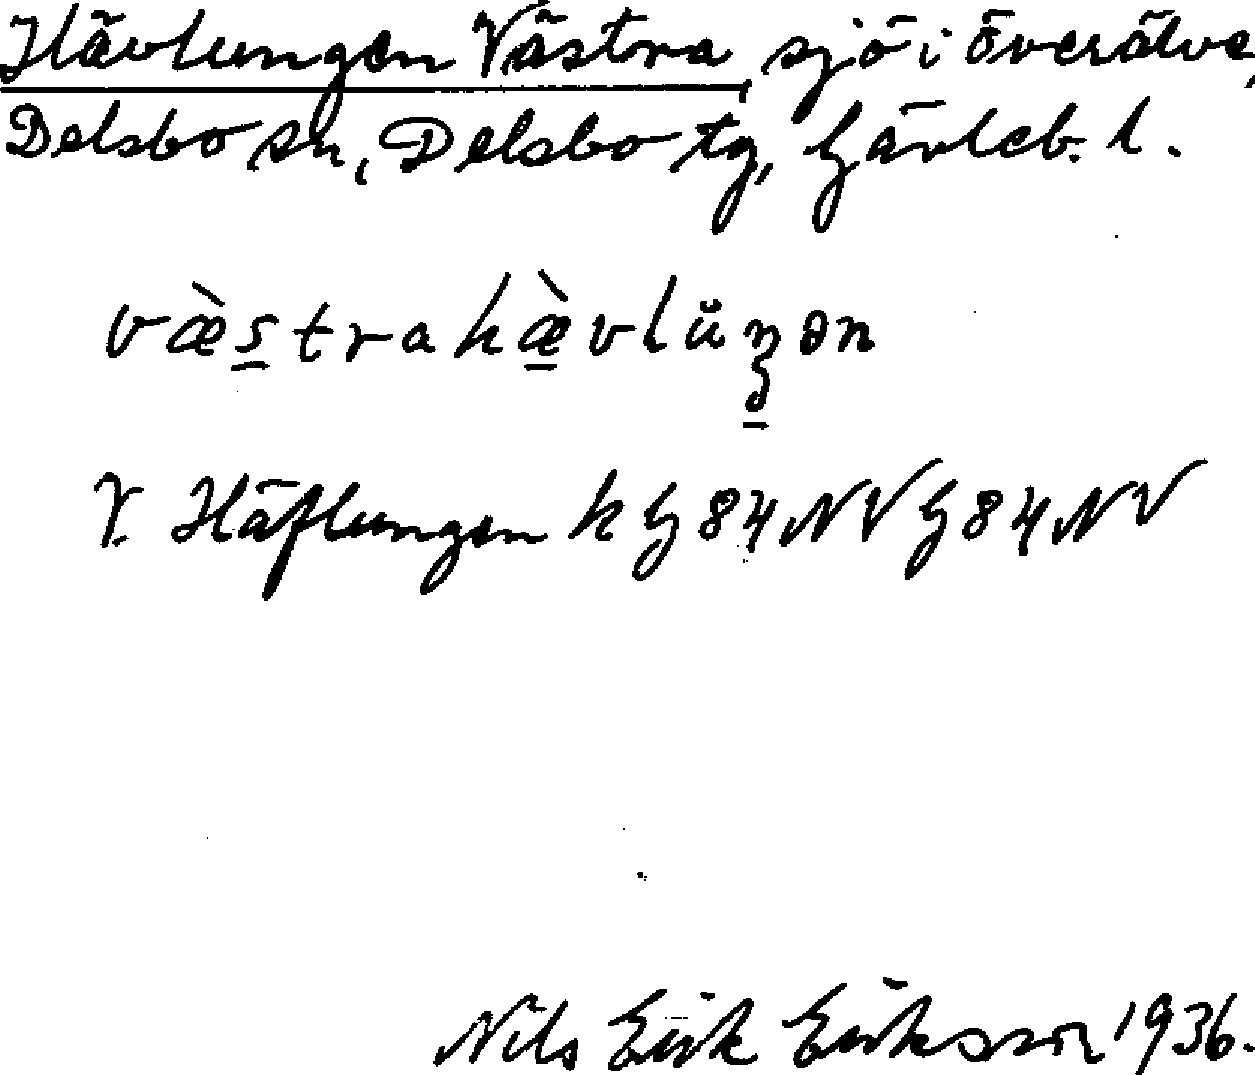 Hävlungen Västra, sjö i Överälve,
Delsbo sn, Delsbo tg, Gävleb. l.
væ̀s̲trahæ̲̀vlŭŋ̲ən
V. Häflungen k G 84 NV G 84 NV
Nils Erik Eriksson 1936.